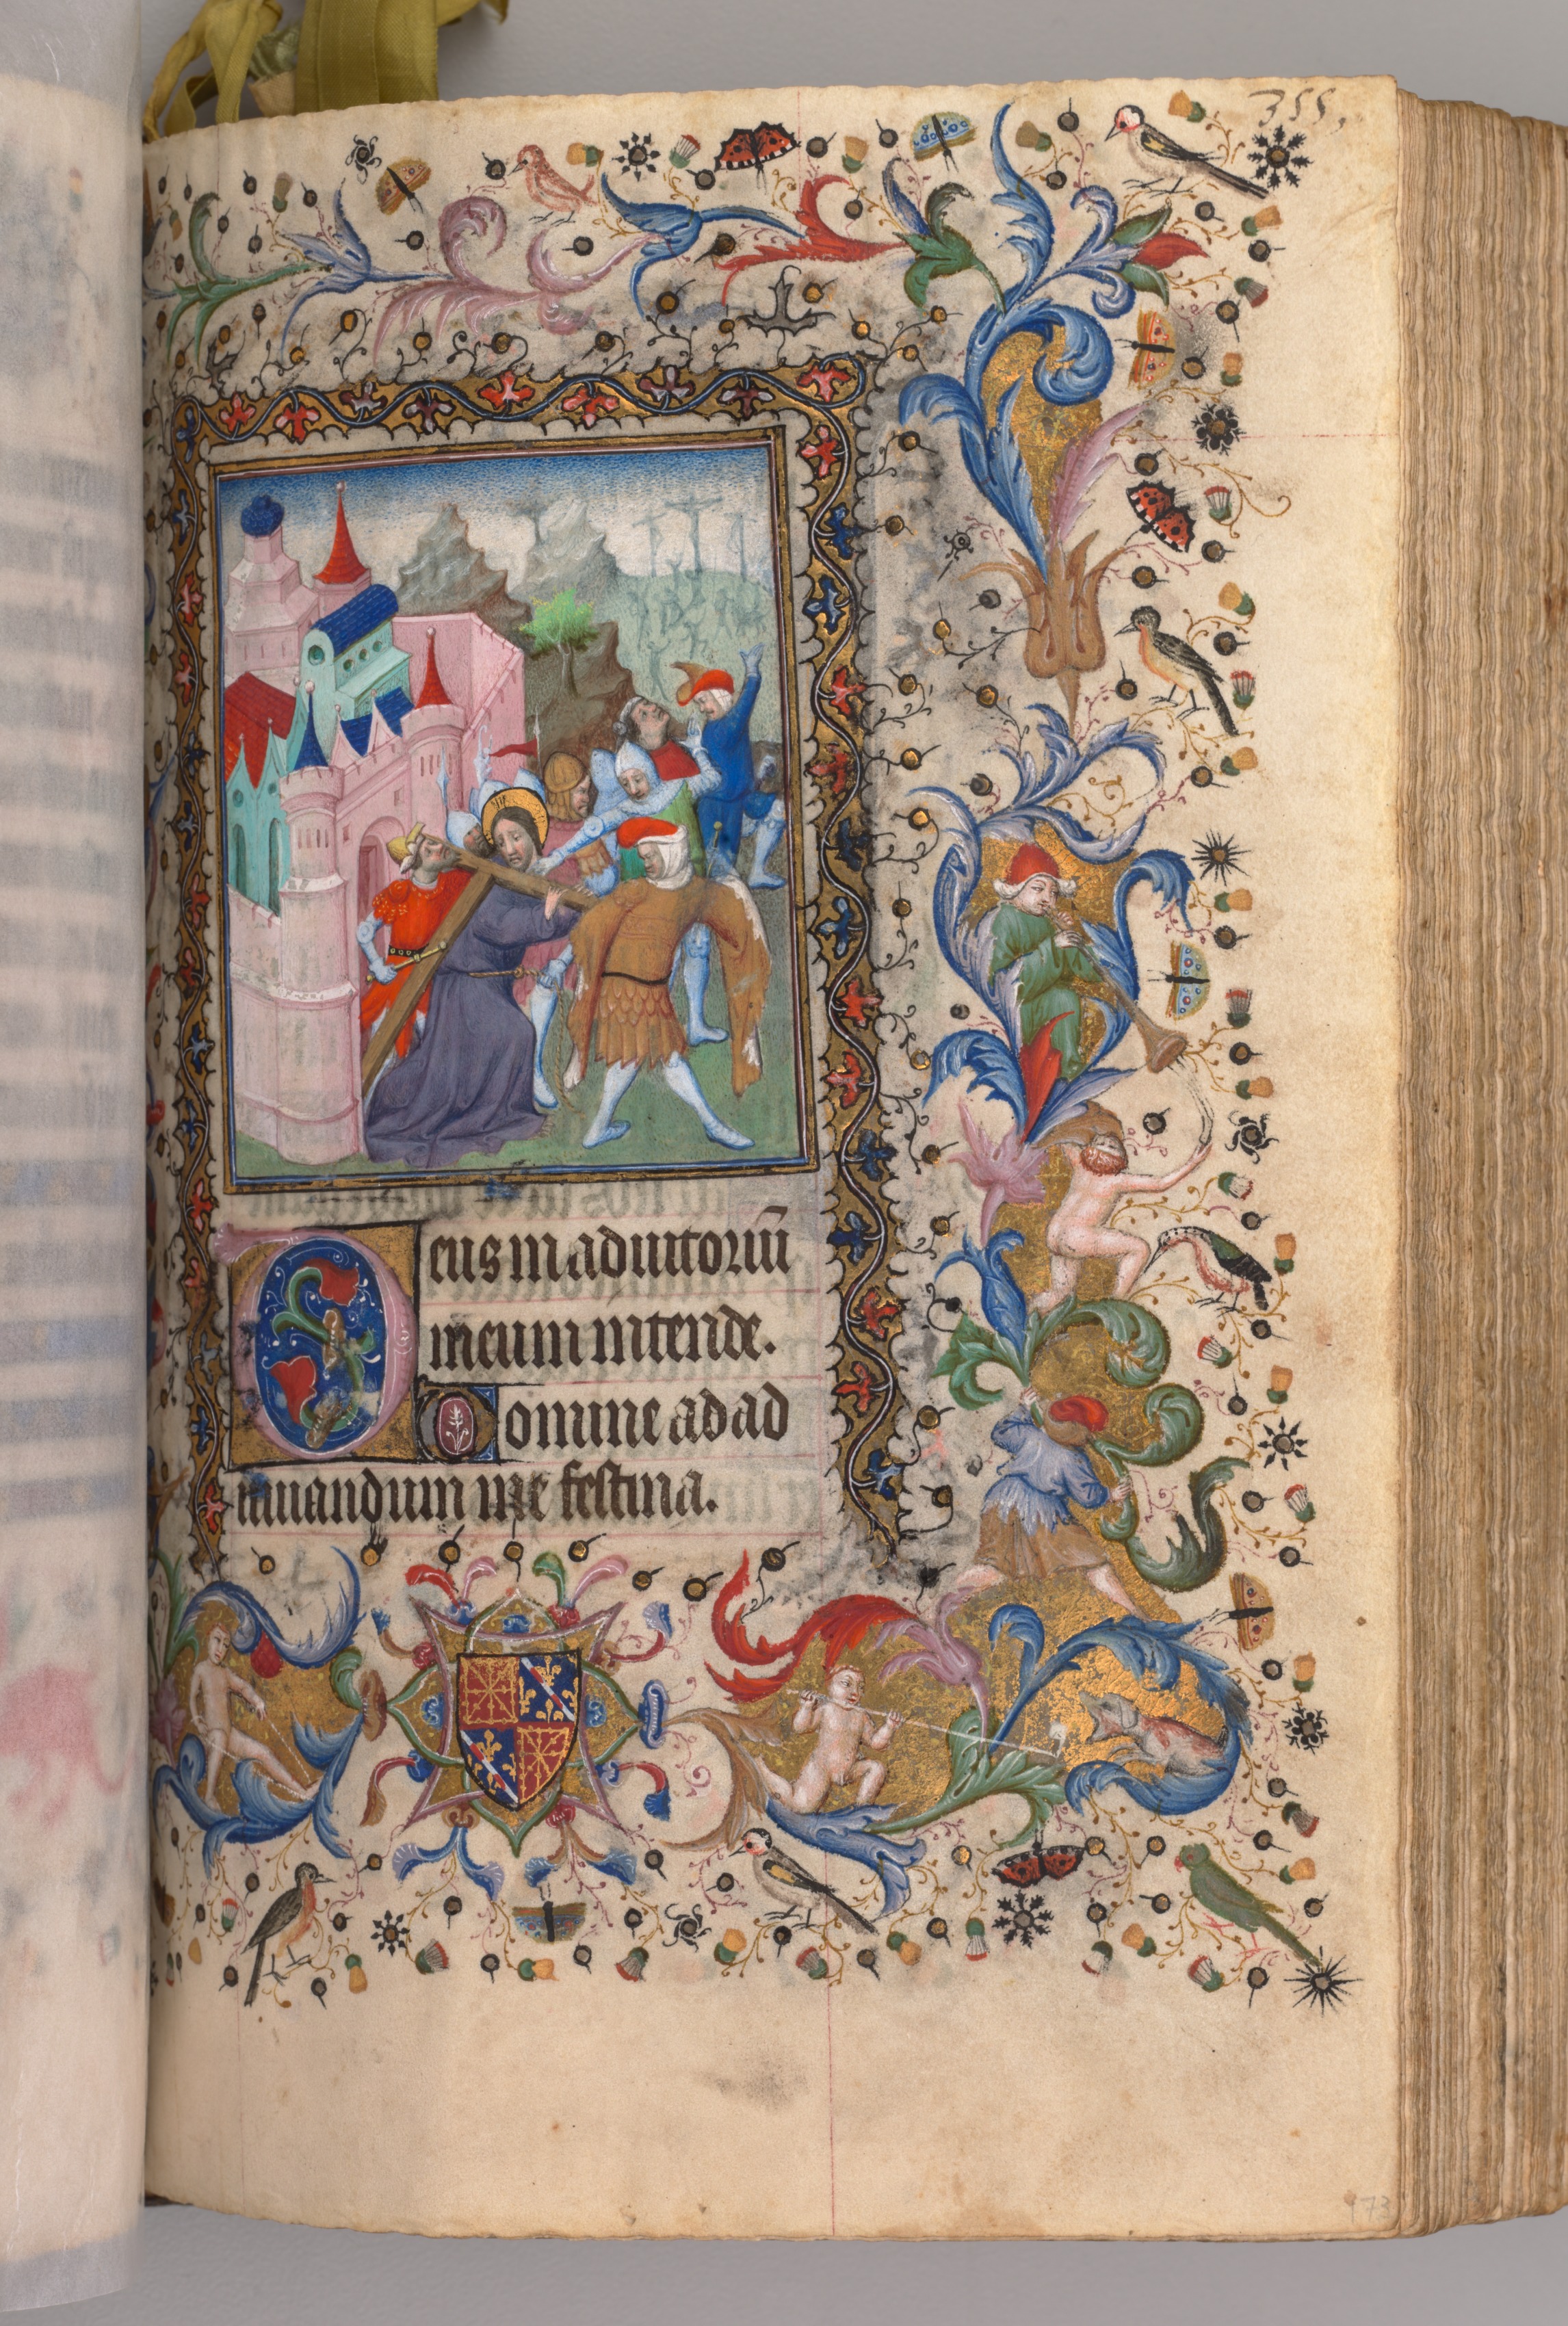 355,
Deus in adiutoriū
meum intende.
Domine ad ad
iuuandum me festina.
173